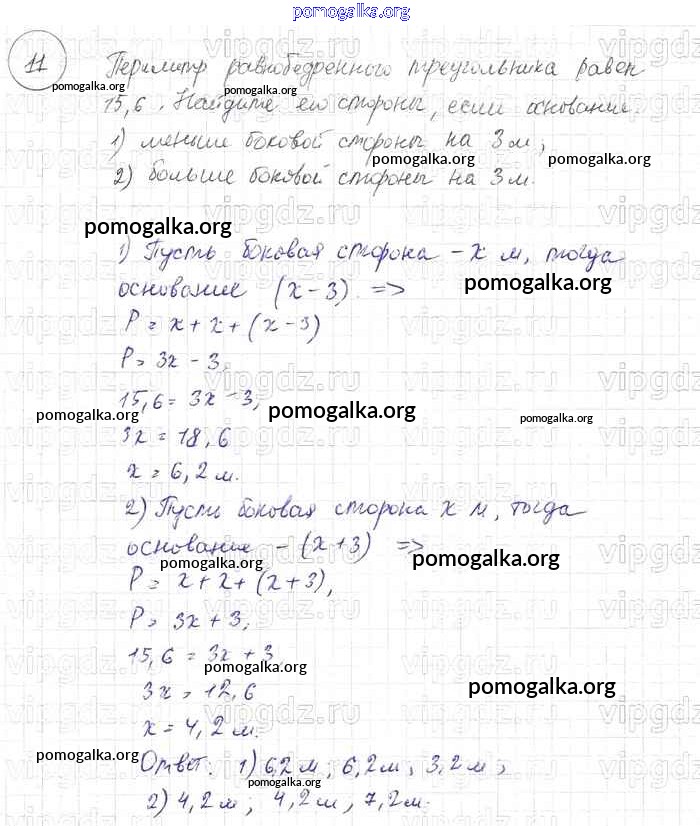 pomogalka.org
11 Периметр равнобедренного треугольника равен
pomogalka.org pomogalka.org
15,6. Найдите его стороны, если основание.
1) меньше боковой стороны на 3 м;
pomogalka.org pomogalka.org
2) больше боковой стороны на 3 м.
vipgdz.ru vipgdz.ru vipgdz.ru
pomogalka.org
1) Пусть боковая сторона - x м, тогда
основание (x - 3). =>
pomogalka.org
P = x + x + (x - 3)
P = 3x - 3,
15,6 = 3x - 3,
pomogalka.org pomogalka.org pomogalka.org
3x = 18,6
x = 6,2 м.
2) Пусть боковая сторона x м, тогда
основание - (x + 3) =>
pomogalka.org pomogalka.org
P = x + x + (x + 3),
P = 3x + 3,
15,6 = 3x + 3
pomogalka.org
3x = 12,6
pomogalka.org
x = 4,2 м.
pomogalka.org
Ответ: 1) 6,2 м; 6,2 м; 3,2 м;
pomogalka.org
2) 4,2 м; 4,2 м; 7,2 м.